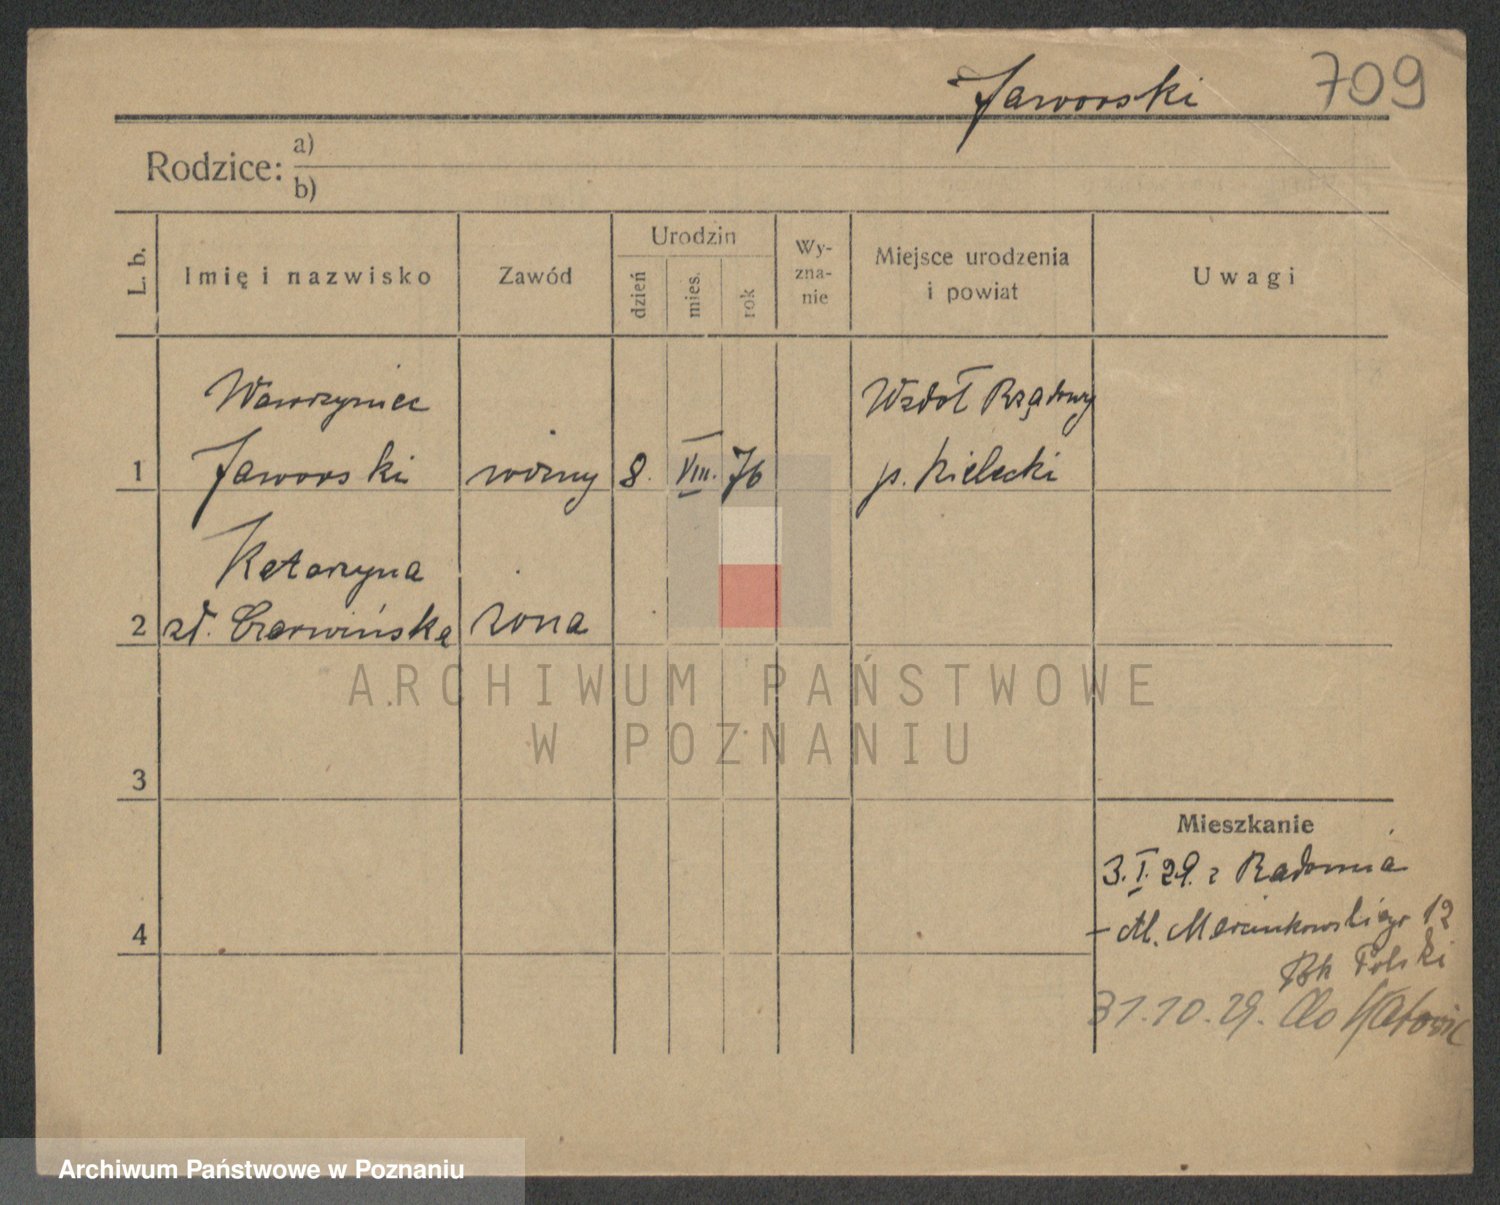 Jaworski 709
Rodzice: a)
b)
L. b.
Imię i nazwisko
Zawód
Urodzin
dzień
mies.
rok
Wy-
zna-
nie
Miejsce urodzenia
i powiat
Uwagi
Wawrzyniec
Wzdoł Rządowy
1 Jaworski woźny 8. VIII. 76 p. Kielecki
Katarzyna
2 zd. Czerwińska żona
3
4
Mieszkanie
3.I.29. z Radomia
Al. Marcinkowskiego 12
Bk Polski
31.10.29. do Katowic
ARCHIWUM PAŃSTWOWE
W POZNANIU
Archiwum Państwowe w Poznaniu